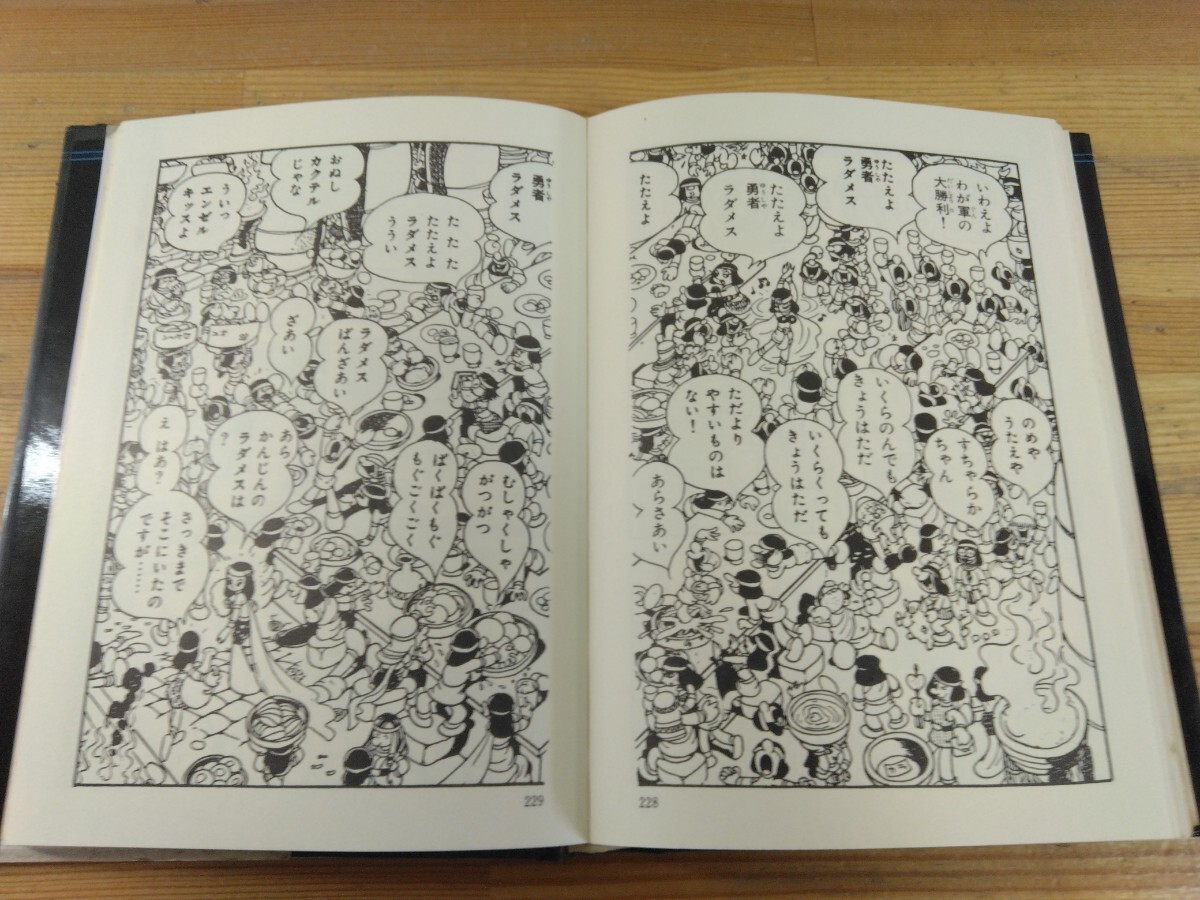 いわえよ
わが軍の
大勝利！
たたえよ
勇者
ラダメス
たたえよ
勇者
ラダメス
たたえよ
のめや
うたえや
すちゃらか
ちゃん
いくらのんでも
きょうはただ
いくらくっても
きょうはただ
ただより
やすいものは
ない！
あらさあい
228
勇者
ラダメス
たたた
たたえよ
ラダメス
ううい
おぬし
カクテル
じゃな
ういっ
エンゼル
キッスよ
ラダメス
ばんざあい
ざあい
むしゃくしゃ
がつがつ
ばくばくもぐ
もぐごくごく
あら
かんじんの
ラダメスは
？
え
はあ？
さっきまで
そこにいたの
ですが……
229